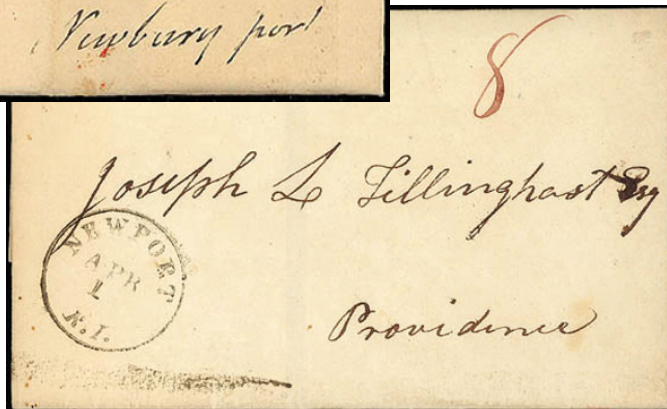 Newbury port
8
Joseph L Tillinghast Esq
NEWPORT
APR
1
R.I.
Providence